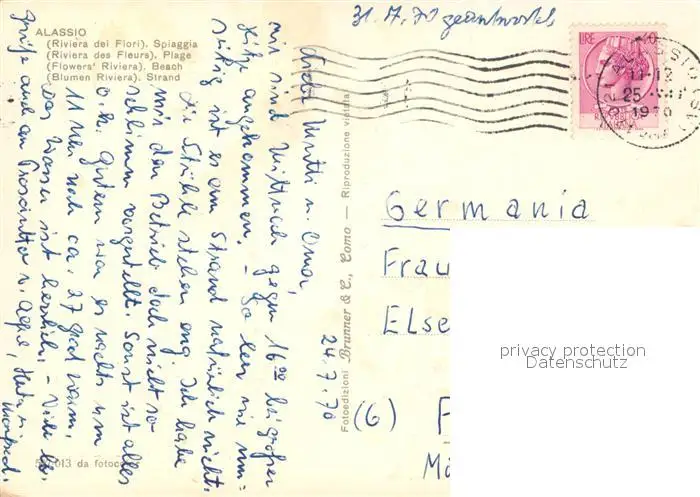 31.7.70 geantwortet
ALASSIO
(Riviera dei Fiori). Spiaggia
(Riviera des Fleurs). Plage
(Flowers' Riviera). Beach
(Blumen Riviera). Strand
LIRE 40
25 VII
1970
24.7.70
Liebe Mutti u. Omai,
wir sind Mittwoch gegen 16.00 bei großer
Hitze angekommen. – So leer wie
ist es am Strand natürlich nicht.
Die Stühle stehen eng. Ich habe
mir den Betrieb doch nicht so
schlimm vorgestellt. Sonst ist alles
o.k. Gestern war es nachts um
11 Uhr noch ca. 27 Grad warm.
Das Wasser ist herrlich. – Viele lb.
Grüße auch an
Manfred.
Fotoedizioni Brunner & C., Como — Riproduzione vietata
Germania
Frau
Else
(6) F
Mö
privacy protection
Datenschutz
013 da fotocolor